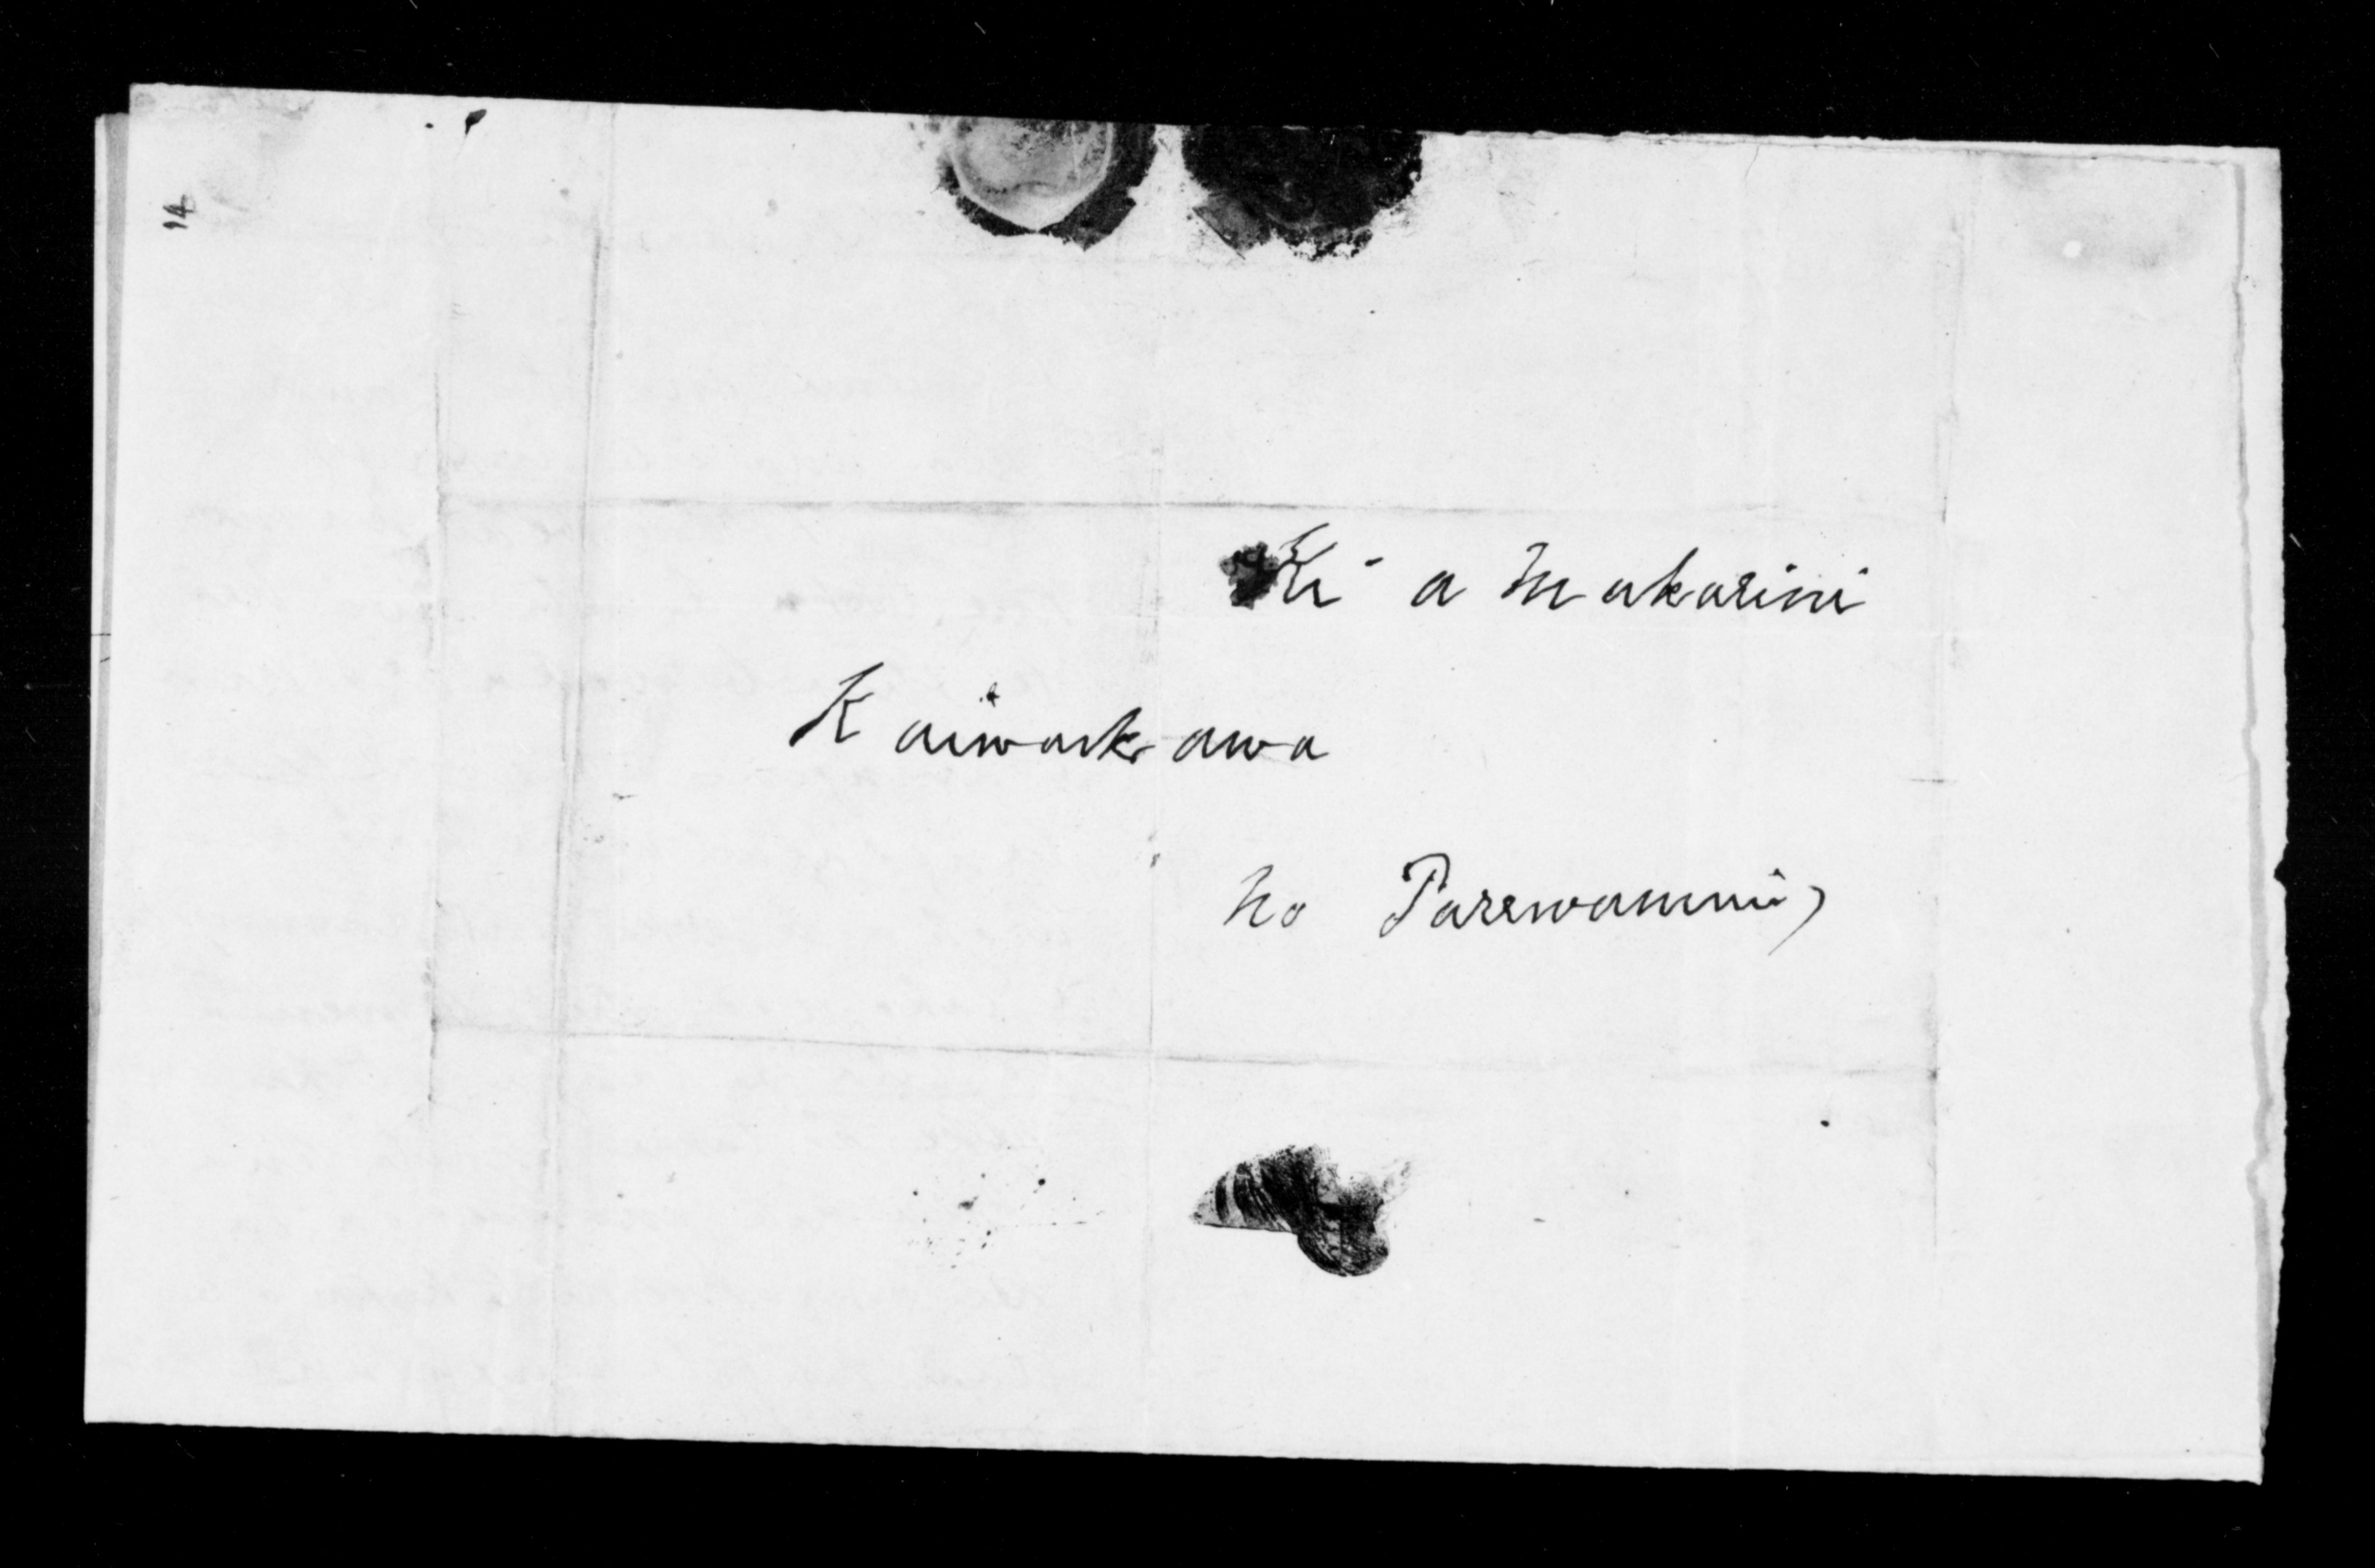 14
Ki a Makarini
Kaiwarkawa
no Parewanui